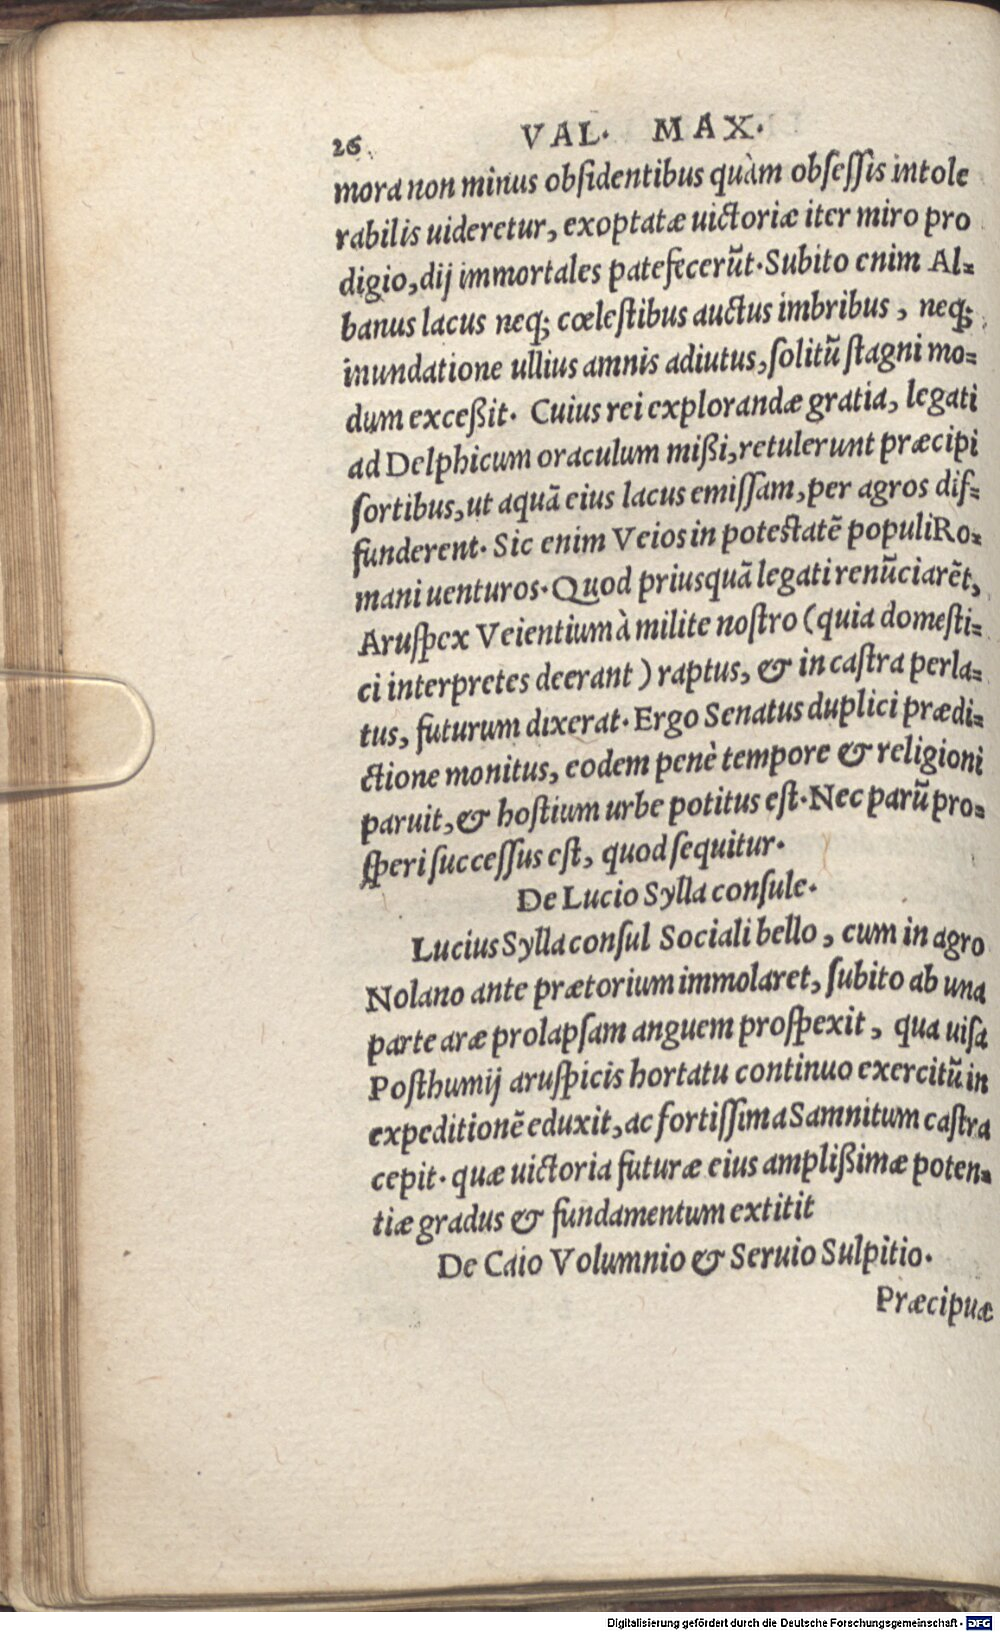 26 VAL. MAX.
mora non minus obſidentibus quàm obſeſſis intole
rabilis uideretur, exoptatæ uictoriæ iter miro pro
digio, dij immortales patefecerūt. Subito enim Al-
banus lacus neq; cœleſtibus auctus imbribus, neq;
inundatione ullius amnis adiutus, ſolitū ſtagni mo-
dum exceßit. Cuius rei explorandæ gratia, legati
ad Delphicum oraculum mißi, retulerunt præcipi
ſortibus, ut aquā eius lacus emiſſam, per agros dif-
funderent. Sic enim Veios in poteſtatē populi Ro-
mani uenturos. Quod priusquā legati renūciarēt,
Aruſpex Veientium à milite noſtro (quia domeſti-
ci interpretes deerant) raptus, & in caſtra perla-
tus, futurum dixerat. Ergo Senatus duplici prædi-
ctione monitus, eodem penè tempore & religioni
paruit, & hoſtium urbe potitus eſt. Nec parū pro-
ſperi ſucceſſus eſt, quod ſequitur.
De Lucio Sylla conſule.
Lucius Sylla conſul Sociali bello, cum in agro
Nolano ante prætorium immolaret, ſubito ab una
parte aræ prolapſam anguem proſpexit, qua uiſa
Poſthumij aruſpicis hortatu continuo exercitū in
expeditionē eduxit, ac fortiſſima Samnitum caſtra
cepit. quæ uictoria futuræ eius amplißimæ poten-
tiæ gradus & fundamentum extitit
De Caio Volumnio & Seruio Sulpitio.
Præcipuæ
Digitalisierung gefördert durch die Deutsche Forschungsgemeinschaft - DFG